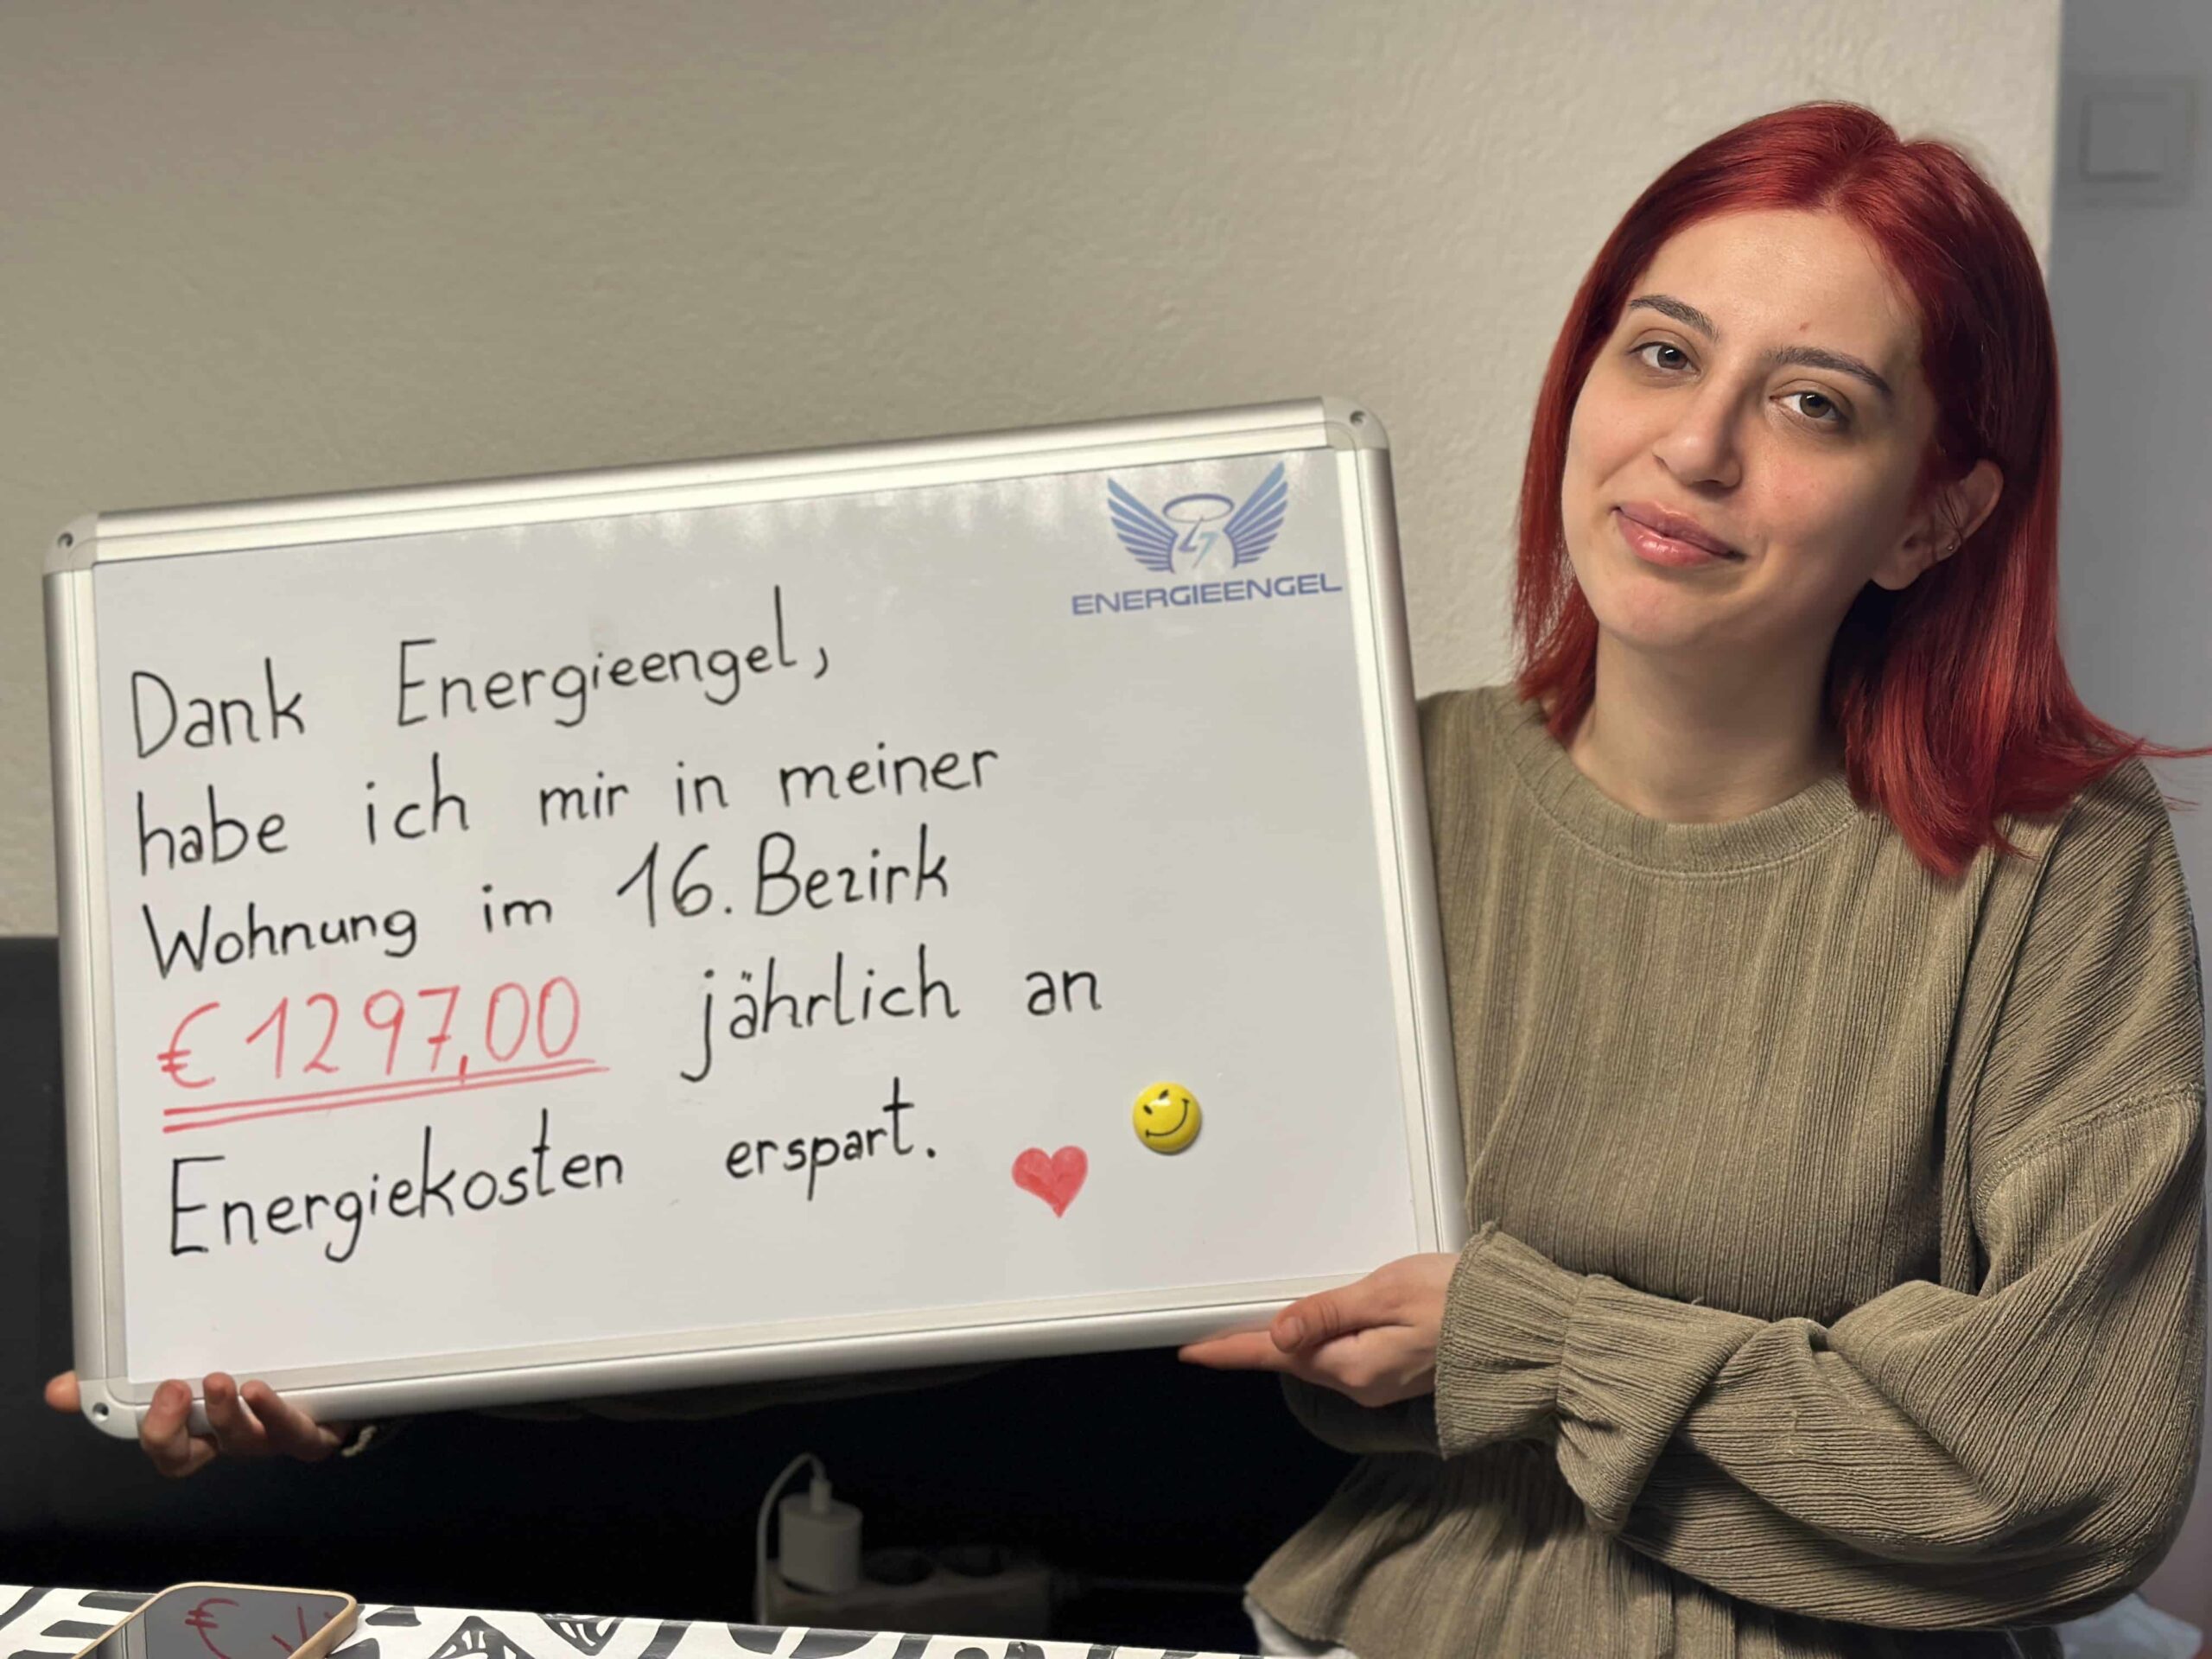 ENERGIEENGEL
Dank Energieengel,
habe ich mir in meiner
Wohnung im 16. Bezirk
€ 1297,00 jährlich an
Energiekosten erspart.
€